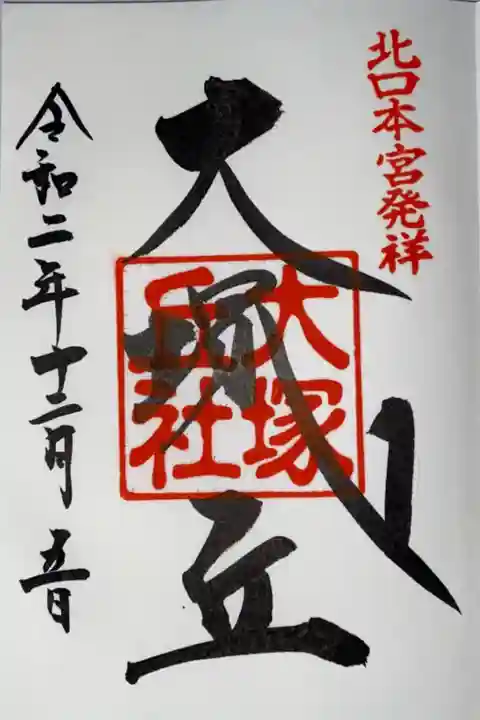 北口本宮発祥
大塚丘
大塚
丘社
令和二年十二月五日